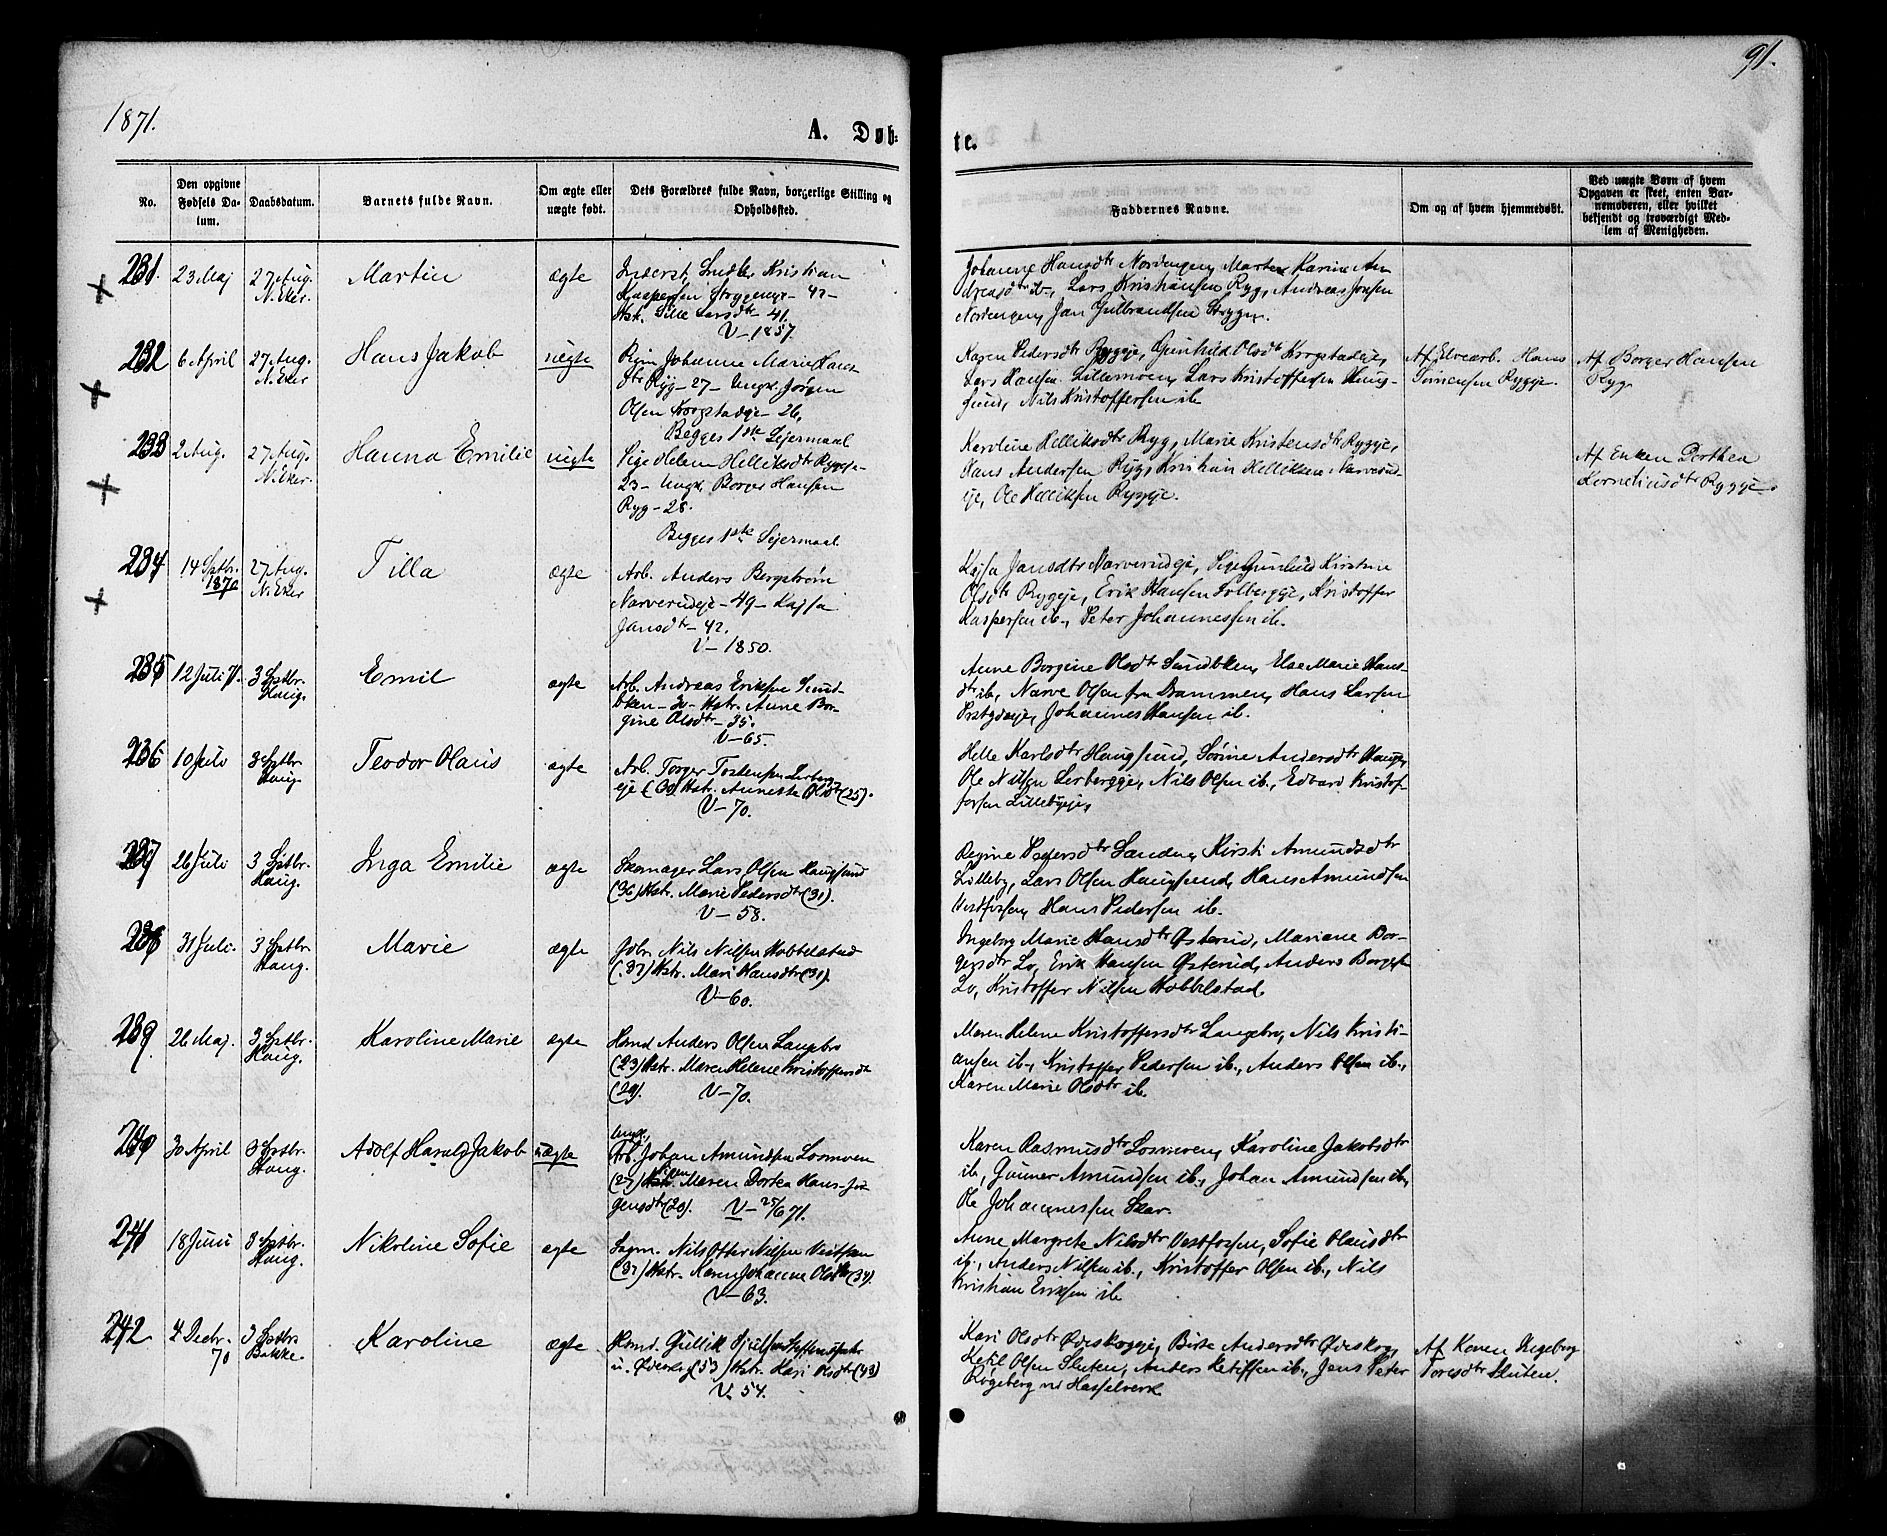 1871.
91.
A. Døb-
te.
No.
Den opgivne Fødsels Da-
tum.
Daabsdatum.
Barnets fulde Navn.
Om ægte eller
uægte født.
Dets Forældres fulde Navn, borgerlige Stilling og
Opholdssted.
Faddernes Navne.
Om og af hvem hjemmedøbt.
Ved uægte Børn af hvem
Opgaven er skeet, enten Bar-
nemoderen, eller hvilket
bekjendt og troværdigt Med-
lem af Menigheden.
231. 23 Maj 27 Aug. Martin ægte Inderst, Kristian
N.Eker. Kaspersen Styggeneje - 42 -
Hst. Lille Larsdtr - 41.
V - 1857.
Johanne Hansdtr Nordengen, Marte Karine An-
dreasdtr ib., Lars Kristiansen Ryg, Andreas Jonsen
Nordengen, Jan Gulbrandsen
232 6 April 27 Aug. Hans Jakob uægte Pige Johanne Marie Hans-
N.Eker. dtr Ryg - 27 - Ungk. Jørgen
Olsen Krogstadeje - 26,
Begges 1ste Lejermaal
Karen Pedersdtr Ryggje, Gunhild Olsdtr Krogstadeje,
Lars Hansen Lillemoen, Lars Kristoffersen Haug-
sund, Nils Kristoffersen ib.
Af Elvearb. Hans
Simensen Ryggje.
Af Borger Hansen
Ryg.
233 2 Aug. 27 Aug. Hanna Emilie uægte Pige Helene Helliksdtr Ryggje
N.Eker. 23 - Ungk. Borger Hansen
Ryg - 28.
Begges 1ste Lejermaal
Karoline Helliksdtr Ryg, Marie Kristensdtr Ryggje,
Hans Andersen Ryg, Kristian Helliksen Narverud-
eje, Ole Helliksen Ryggje.
Af Enken Dorthea
Korneliusdtr Ryggje.
234 14 Sptbr. 27 Aug. Tilla ægte Arb. Anders Bergstrøm
1870 N.Eker Narverudeje - 49 - Kajsa
Jansdtr - 42.
V - 1850.
Kajsa Jansdtr Narverudeje, Pige Gunhild Kirstine
Olsdtr Ryggje, Erik Hansen Solbergeje, Kristoffer
Kaspersen ib., Peter Johannessen ib.
235 12 Juli 71. 3 Sptbr. Emil ægte Arb. Andreas Eriksen Sund-
Haug. bken - Hstr. Anne Bor-
gine Olsdtr - 35.
V - 65.
Anne Borgine Olsdtr Sundbken, Else Marie Hans-
dtr ib., Narve Olsen fra Drammen, Hans Larsen
Johannes Hansen ib.
236 10 Juli 3 Sptbr. Teodor Olaus ægte Arb. Torger Tostensen Lerberg
Haug. eje (30) Hstr. Annette Olsdtr (25).
V - 70.
Helle Karlsdtr Haugsund, Sørine Andersdtr Haug,
Ole Nilsen Lerbergeje, Nils Olsen ib., Edvard Kristof-
fersen Lillebyeje,
237 26 Juli 3 Sptbr. Inga Emilie ægte Skomager Lars Olsen Haugsund
Haug. (36) Hstr. Marie Pedersdtr (31).
V - 58.
Regine Pedersdtr Sanden, Kirsti Amundsdtr
Lilleby, Lars Olsen Haugsund, Hans Amundsen
Vestfossen, Hans Pedersen ib.
238 31 Juli. 3 Sptbr. Marie ægte Gdbr. Nils Nilsen Hobbelstad
Haug. (37) Hstr. Mari Hansdtr (31).
V - 60.
Ingeborg Marie Hansdtr Østerud, Mariane Bor-
gersdtr Lo, Erik Hansen Østerud, Anders Borgersen
Lo, Kristoffer Nilsen Hobbelstad.
239. 26 Maj. 3 Sptbr. Karoline Marie ægte Hsmd Anders Olsen Langebro
Haug. (23) Hstr. Maren Helene Kristoffersdtr
(20). V - 70.
Maren Helene Kristoffersdtr Langebro, Nils Kristi-
ansen ib., Kristoffer Pedersen ib., Anders Olsen ib.,
Karen Marie Olsdtr ib.
240 30 April 3 Sptbr. Adolf Harald Jakob uægte Ungk.
Haug. Arb. Johan Amundsen Losmoen
(27) Maren Dortea Hans Jør-
gensdtr (20). V - 25/6 71.
Karen Rasmusdtr Losmoen, Karoline Jakobsdtr
ib., Gunner Amundsen ib., Johan Amundsen ib.,
Ole Johannessen Skar.
241 18 Juni 3 Sptbr. Nikoline Sofie ægte Sagm. Nils Otter Nilsen Vestfossen
Haug. (37) Hstr. Karen Johanne Olsdtr (34).
V - 63.
Anne Margrete Nilsdtr Vestfossen, Sofie Olausdtr
ib., Anders Nilsen ib., Kristoffer Olsen ib., Nils
Kristian Eriksen ib
242 4 Decbr. 3 Sptbr. Karoline ægte Hsmd. Gullik
70 Bakke. u. Ødeskog (53) Hstr. Kari Olsdtr (43)
V. 54.
Kari Olsdtr Ødeskogeje, Birte Andersdtr Ødeskog,
Ketil Olsen Sluten, Anders Ketilsen ib., Jens Peter
Rogeberg v. Hasselverk
Af Karen Ingeborg
Toresdtr Sluten.